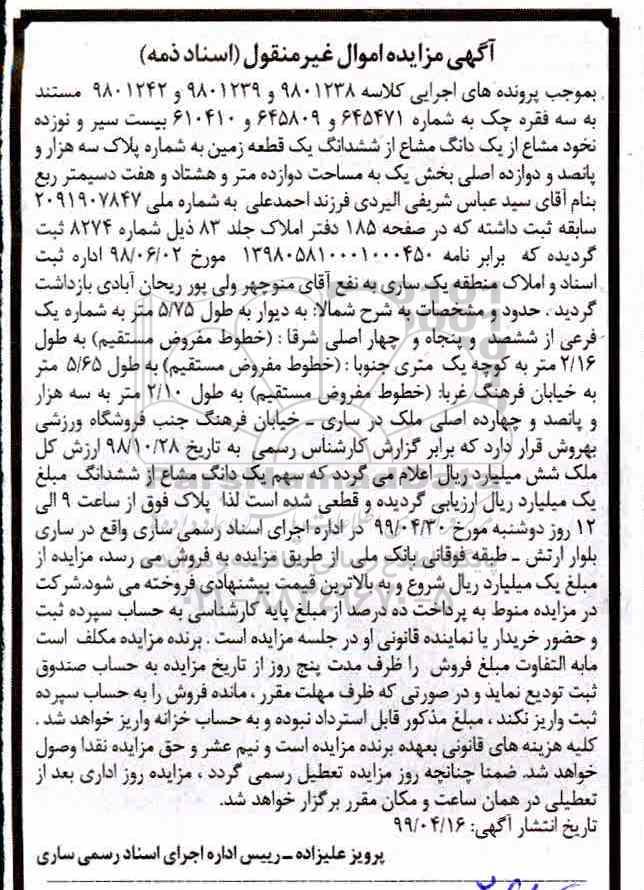 آگهی مزایده اموال غیرمنقول (اسناد ذمه)
بموجب پرونده های اجرایی کلاسه ۹۸۰۱۲۳۸ و ۹۸۰۱۲۳۹ و ۹۸۰۱۲۴۲ مستند
به سه فقره چک به شماره ۶۴۵۴۷۱ و ۶۴۵۸۰۹ و ۶۱۰۴۱۰ بیست سیر و نوزده
نخود مشاع از یک دانگ مشاع از ششدانگ یک قطعه زمین به شماره پلاک سه هزار و
پانصد و دوازده اصلی بخش یک به مساحت دوازده متر و هشتاد و هفت دسیمتر ربع
بنام آقای سید عباس شریفی الیردی فرزند احمدعلی به شماره ملی ۲۰۹۱۹۰۷۸۴۷
سابقه ثبت داشته که در صفحه ۱۸۵ دفتر املاک جلد ۸۳ ذیل شماره ۸۲۷۴ ثبت
گردیده که برابر نامه ۱۳۹۸۰۵۸۱۰۰۰۱۰۰۰۴۵۰ مورخ ۹۸/۰۶/۰۲ اداره ثبت
اسناد و املاک منطقه یک ساری به نفع آقای منوچهر ولی پور ریحان آبادی بازداشت
گردید . حدود و مشخصات به شرح شمالا: به دیوار به طول ۵/۷۵ متر به شماره یک
فرعی از ششصد و پنجاه و چهار اصلی شرقا : (خطوط مفروض مستقیم) به طول
۲/۱۶ متر به کوچه یک متری جنوبا : (خطوط مفروض مستقیم) به طول ۵/۶۵ متر
به خیابان فرهنگ غربا: (خطوط مفروض مستقیم) به طول ۲/۱۰ متر به سه هزار
و پانصد و چهارده اصلی ملک در ساری ـ خیابان فرهنگ جنب فروشگاه ورزشی
بهروش قرار دارد که برابر گزارش کارشناس رسمی به تاریخ ۹۸/۱۰/۲۸ ارزش کل
ملک شش میلیارد ریال اعلام می گردد که سهم یک دانگ مشاع از ششدانگ مبلغ
یک میلیارد ریال ارزیابی گردیده و قطعی شده است لذا پلاک فوق از ساعت ۹ الی
۱۲ روز دوشنبه مورخ ۹۹/۰۴/۳۰ در اداره اجرای اسناد رسمی ساری واقع در ساری
بلوار ارتش ـ طبقه فوقانی بانک ملی از طریق مزایده به فروش می رسد، مزایده از
مبلغ یک میلیارد ریال شروع و به بالاترین قیمت پیشنهادی فروخته می شود.شرکت
در مزایده منوط به پرداخت ده درصد از مبلغ پایه کارشناسی به حساب سپرده ثبت
و حضور خریدار یا نماینده قانونی او در جلسه مزایده است . برنده مزایده مکلف است
مابه التفاوت مبلغ فروش را ظرف مدت پنج روز از تاریخ مزایده به حساب صندوق
ثبت تودیع نماید و در صورتی که ظرف مهلت مقرر ، مانده فروش را به حساب سپرده
ثبت واریز نکند ، مبلغ مذکور قابل استرداد نبوده و به حساب خزانه واریز خواهد شد .
کلیه هزینه های قانونی بعهده برنده مزایده است و نیم عشر و حق مزایده نقدا وصول
خواهد شد. ضمنا چنانچه روز مزایده تعطیل رسمی گردد ، مزایده روز اداری بعد از
تعطیلی در همان ساعت و مکان مقرر برگزار خواهد شد.
تاریخ انتشار آگهی: ۹۹/۰۴/۱۶
پرویز علیزاده ـ رییس اداره اجرای اسناد رسمی ساری